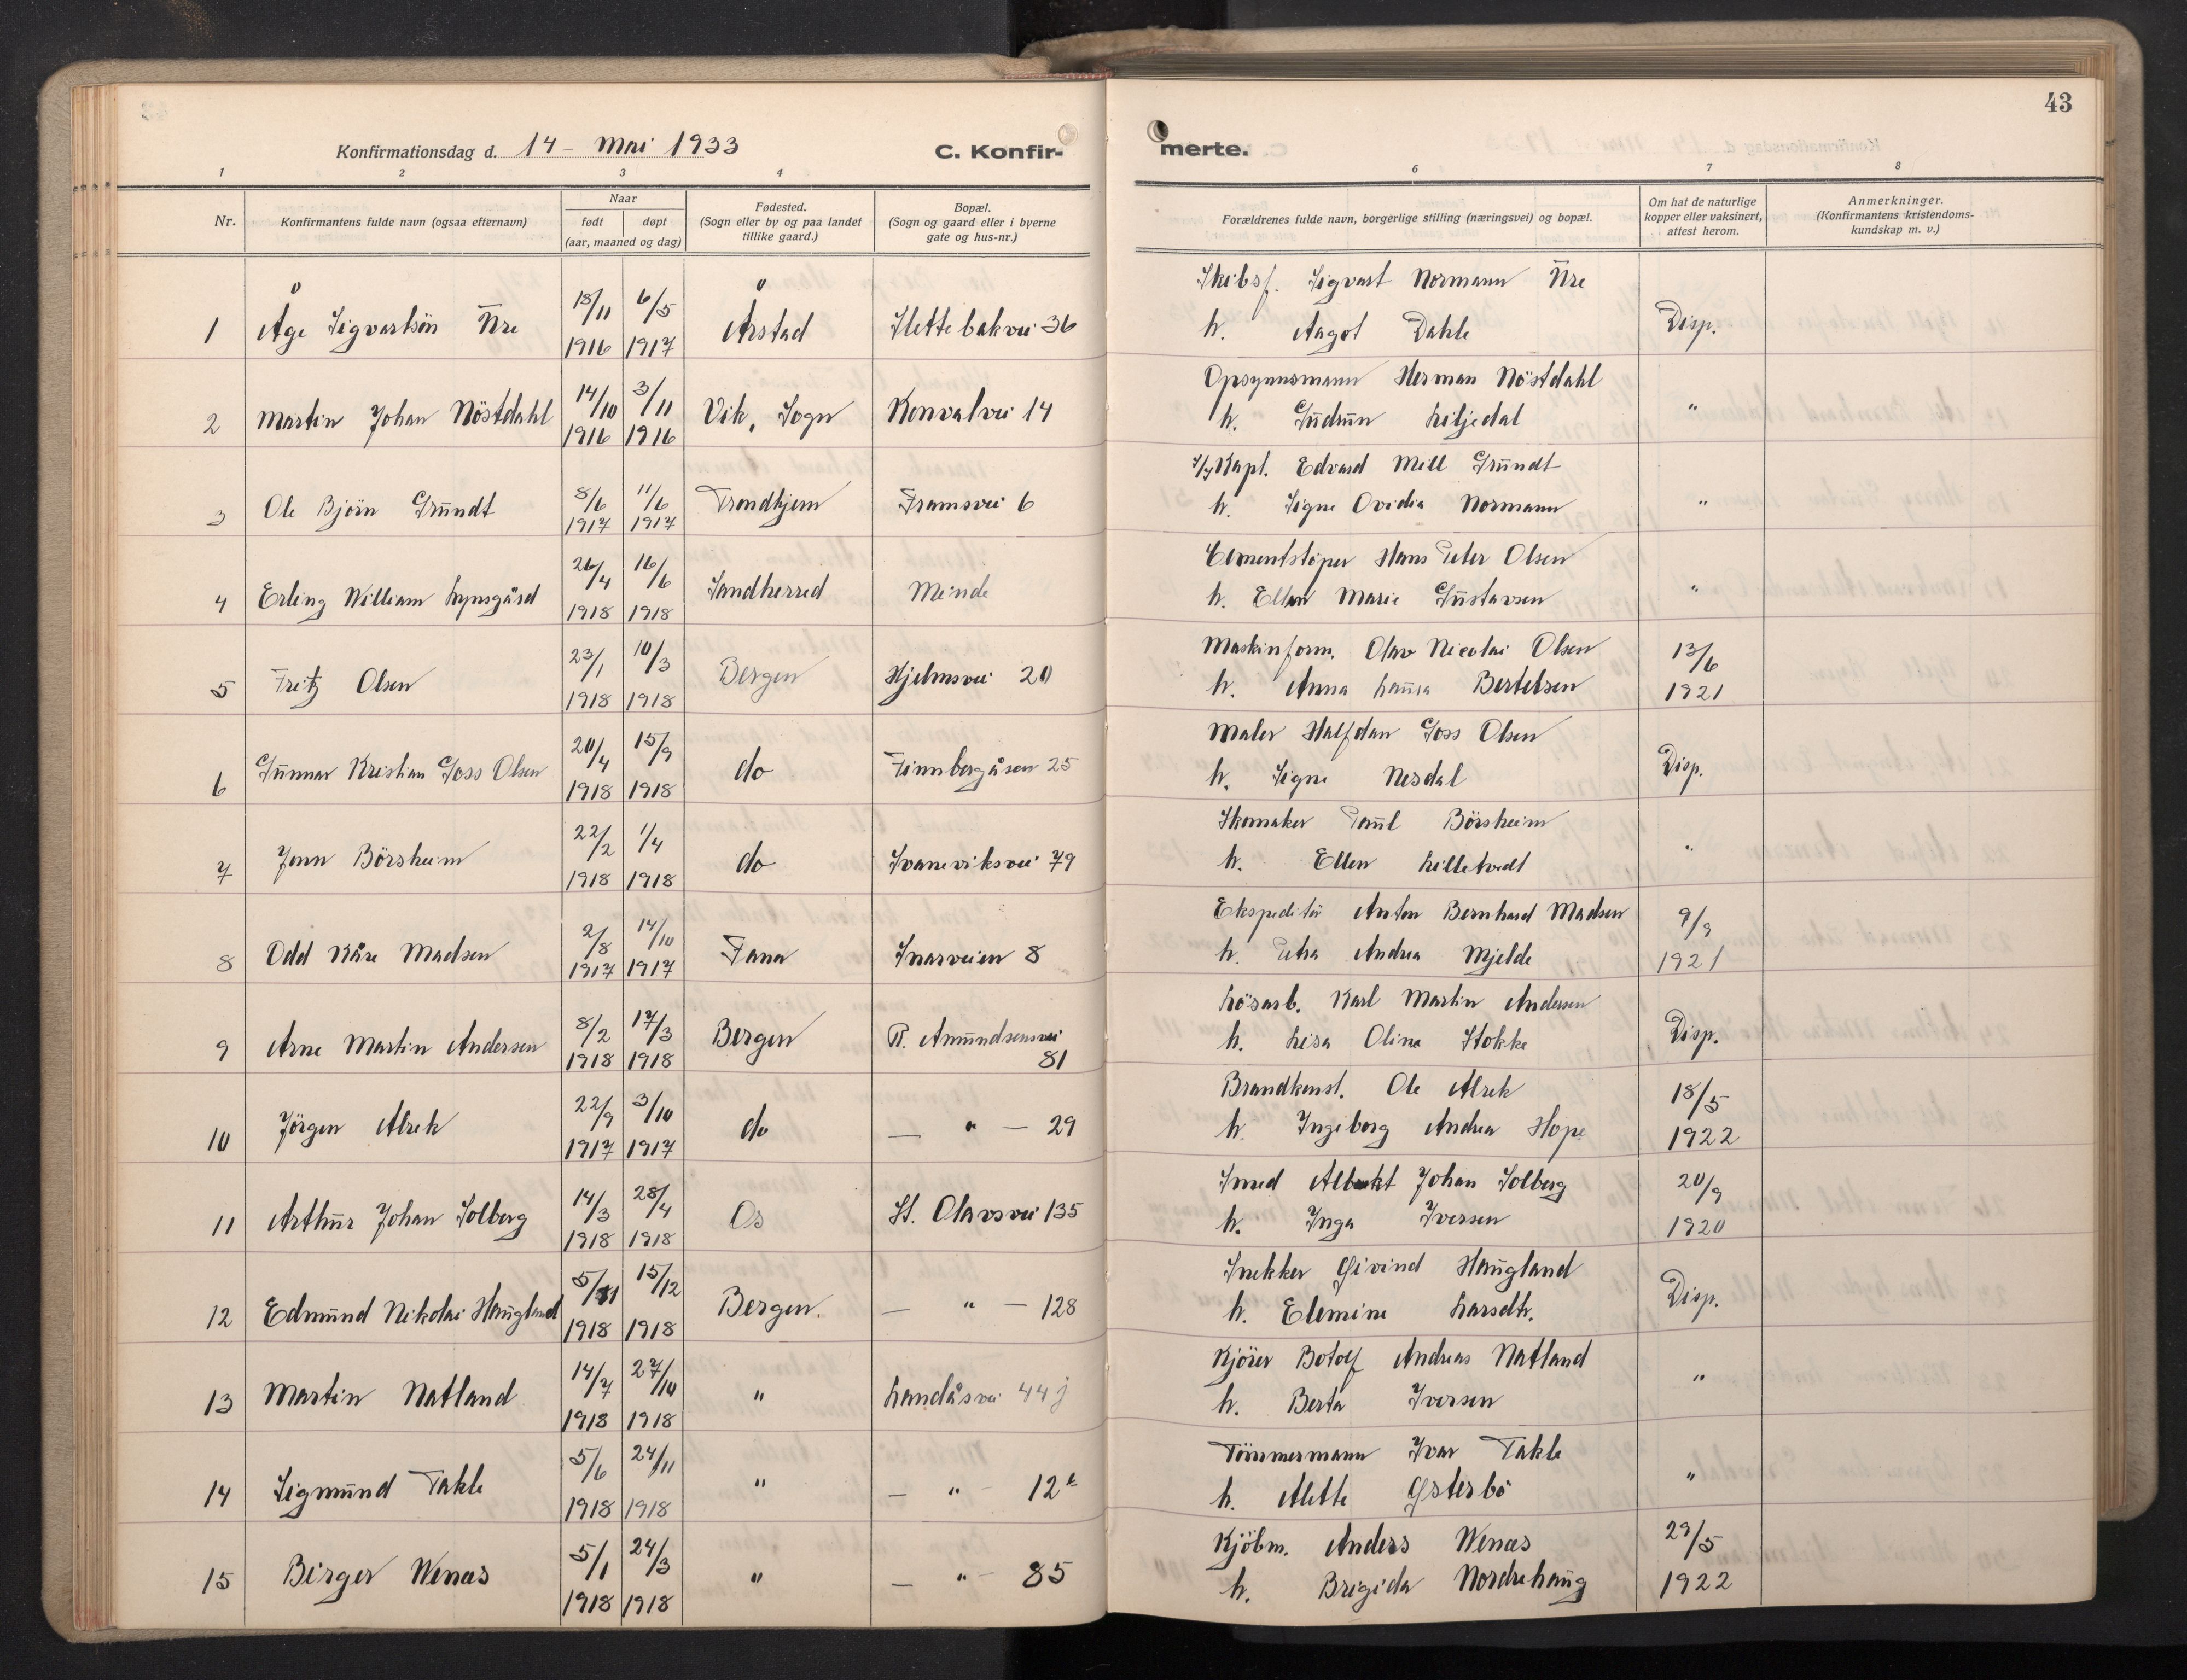 43
Konfirmationsdag d. 14 - Mai 1933
C. Konfir-
merte.
1 2 3 4 5 6 7 8
Nr.
Konfirmantens fulde navn (ogsaa efternavn)
Naar
født
døpt
(aar, maaned og dag)
Fødested.
(Sogn eller by og paa landet
tillike gaard.)
Bopæl.
(Sogn og gaard eller i byerne
gate og hus-nr.)
Forældrenes fulde navn, borgerlige stilling (næringsvei) og bopæl.
Om hat de naturlige
kopper eller vaksinert,
attest herom.
Anmerkninger.
(Konfirmantens kristendoms-
kundskap m. v.)
Skibsf. Sigvart Normann Ure
1 Åge Sigvartsön Ure 18/11 1916 6/5 1917 Årstad Slettebakvei 36
h. Aagot Dahle Disp.
Opsynsmann Herman Nöstdahl
2 Martin Johan Nöstdahl 14/10 1916 3/11 1916 Vik, Sogn Konvalvei 14
h. Gudrun Liljedal "
Kapt. Edvard Mill Grundt
3 Ole Björn Grundt 8/6 1917 11/6 1917 Trondhjem Framsvei 6
h. Signe Ovidia Normann "
Cementstöper Hans Peter Olsen
4 Erling William Lynsgård 26/4 1918 16/6 1918 Sandherred Minde
h. Ellen Marie Gustavsen "
Maskinform. Olav Nicolai Olsen
5 Fritz Olsen 23/1 1918 10/3 1918 Bergen Hjelmsvei 20
h. Anna Laura Bertelsen 13/6 1921
Maler Halfdan Goss Olsen
6 Gunnar Kristian Goss Olsen 20/4 1918 15/9 1918 do Finnbergåsen 25
h. Signe Nesdal Disp.
Skomaker Paul Börsheim
7 Jonn Börsheim 22/2 1918 1/4 1918 do Svaneviksvei 79
h. Ellen Lilletvedt "
Ekspeditör Anton Bernhard Madsen
8 Odd Kåre Madsen 2/8 1917 14/10 1917 Fana Snarveien 8
h. Petra Andrea Mjelde 9/9 1921
Lösarb. Karl Martin Andersen
9 Arne Martin Andersen 8/2 1918 17/3 1918 Bergen R. Amundsensvei 81
h. Lisa Olina Stokke Disp.
Brandkonst. Ole Alrek
10 Jörgen Alrek 22/9 1917 3/10 1917 do — " — 29
h. Ingeborg Andrea Hope 18/5 1922
Smed Albrekt Johan Solberg
11 Arthur Johan Solberg 14/3 1918 28/4 1918 Os St. Olavsvei 135
h. Inga Iversen 20/9 1920
Snekker Øivind Haugland
12 Edmund Nikolai Haugland 5/11 1918 15/12 1918 Bergen. — " — 128
h. Elemine Larsdtr. Disp.
Kjörer Botolf Andreas Natland
13 Martin Natland 14/7 1918 27/10 1918 " Landåsvei 44 j
h. Berta Iversen "
Tömmermann Ivar Takle
14 Sigmund Takle 5/6 1918 24/11 1918 " — " — 12
h. Alette Østerbö "
Kjöbm. Anders Wenas
15 Birger Wenas 5/1 1918 24/3 1918 " — " — 85
h. Brigida Nordrehaug 29/5 1922